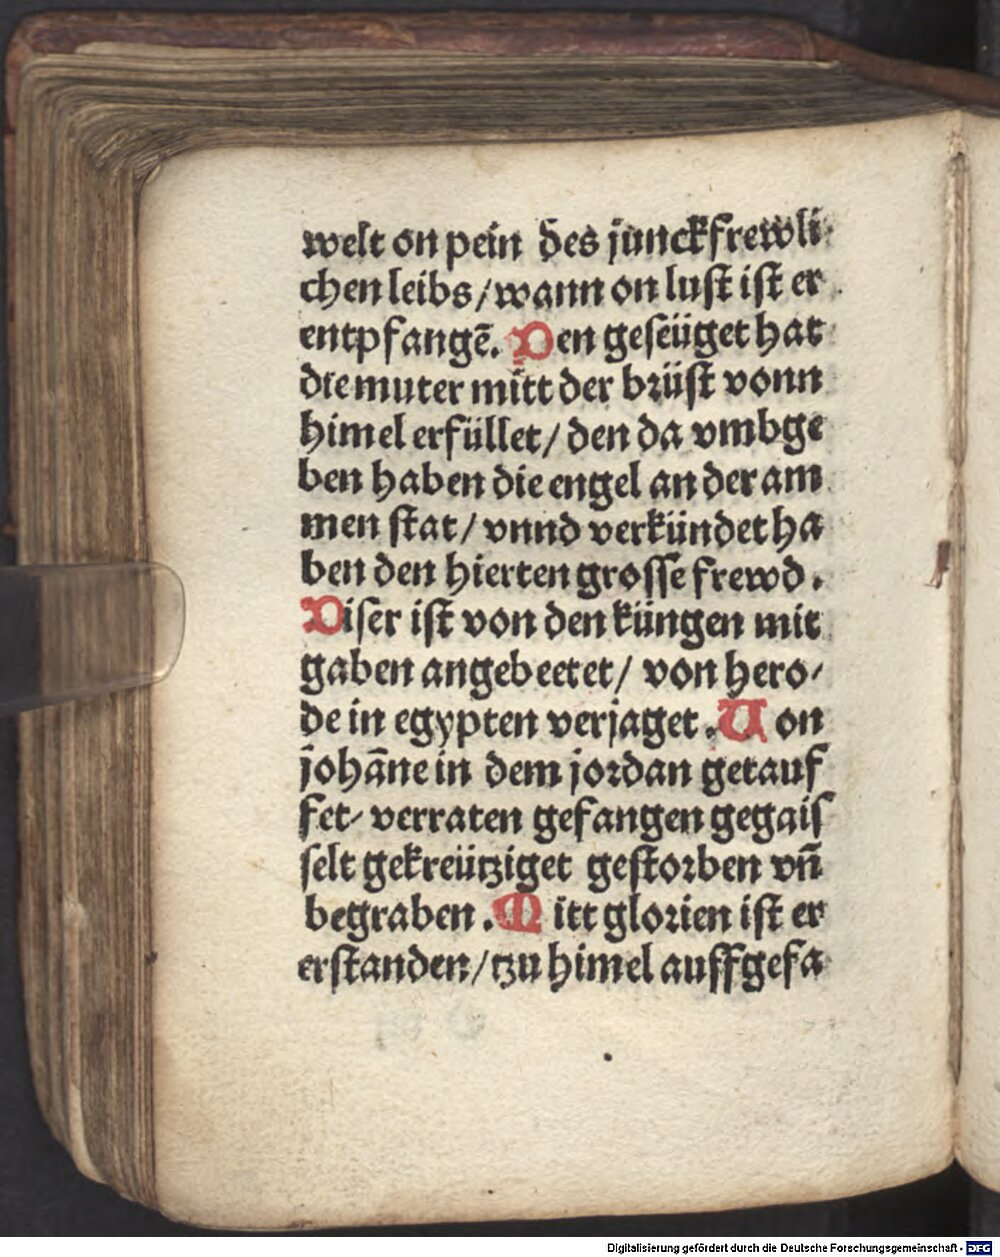 welt on pein des junckfrewli
chen leibs/wann on lust ist er
entpfangē. Den geseüget hat
die muter mitt der brüst vonn
himel erfüllet/den da vmbge
ben haben die engel an der am
men stat/vnnd verkündet ha
ben den hierten grosse frewd.
Diser ist von den küngen mit
gaben angebeetet/von hero/
de in egypten verjaget. Von
johāne in dem jordan getauf
fet/verraten gefangen gegais
selt gekreütziget gestorben vñ
begraben. Mitt glorien ist er
erstanden/tzu himel auffgefa
Digitalisierung gefördert durch die Deutsche Forschungsgemeinschaft - DFG